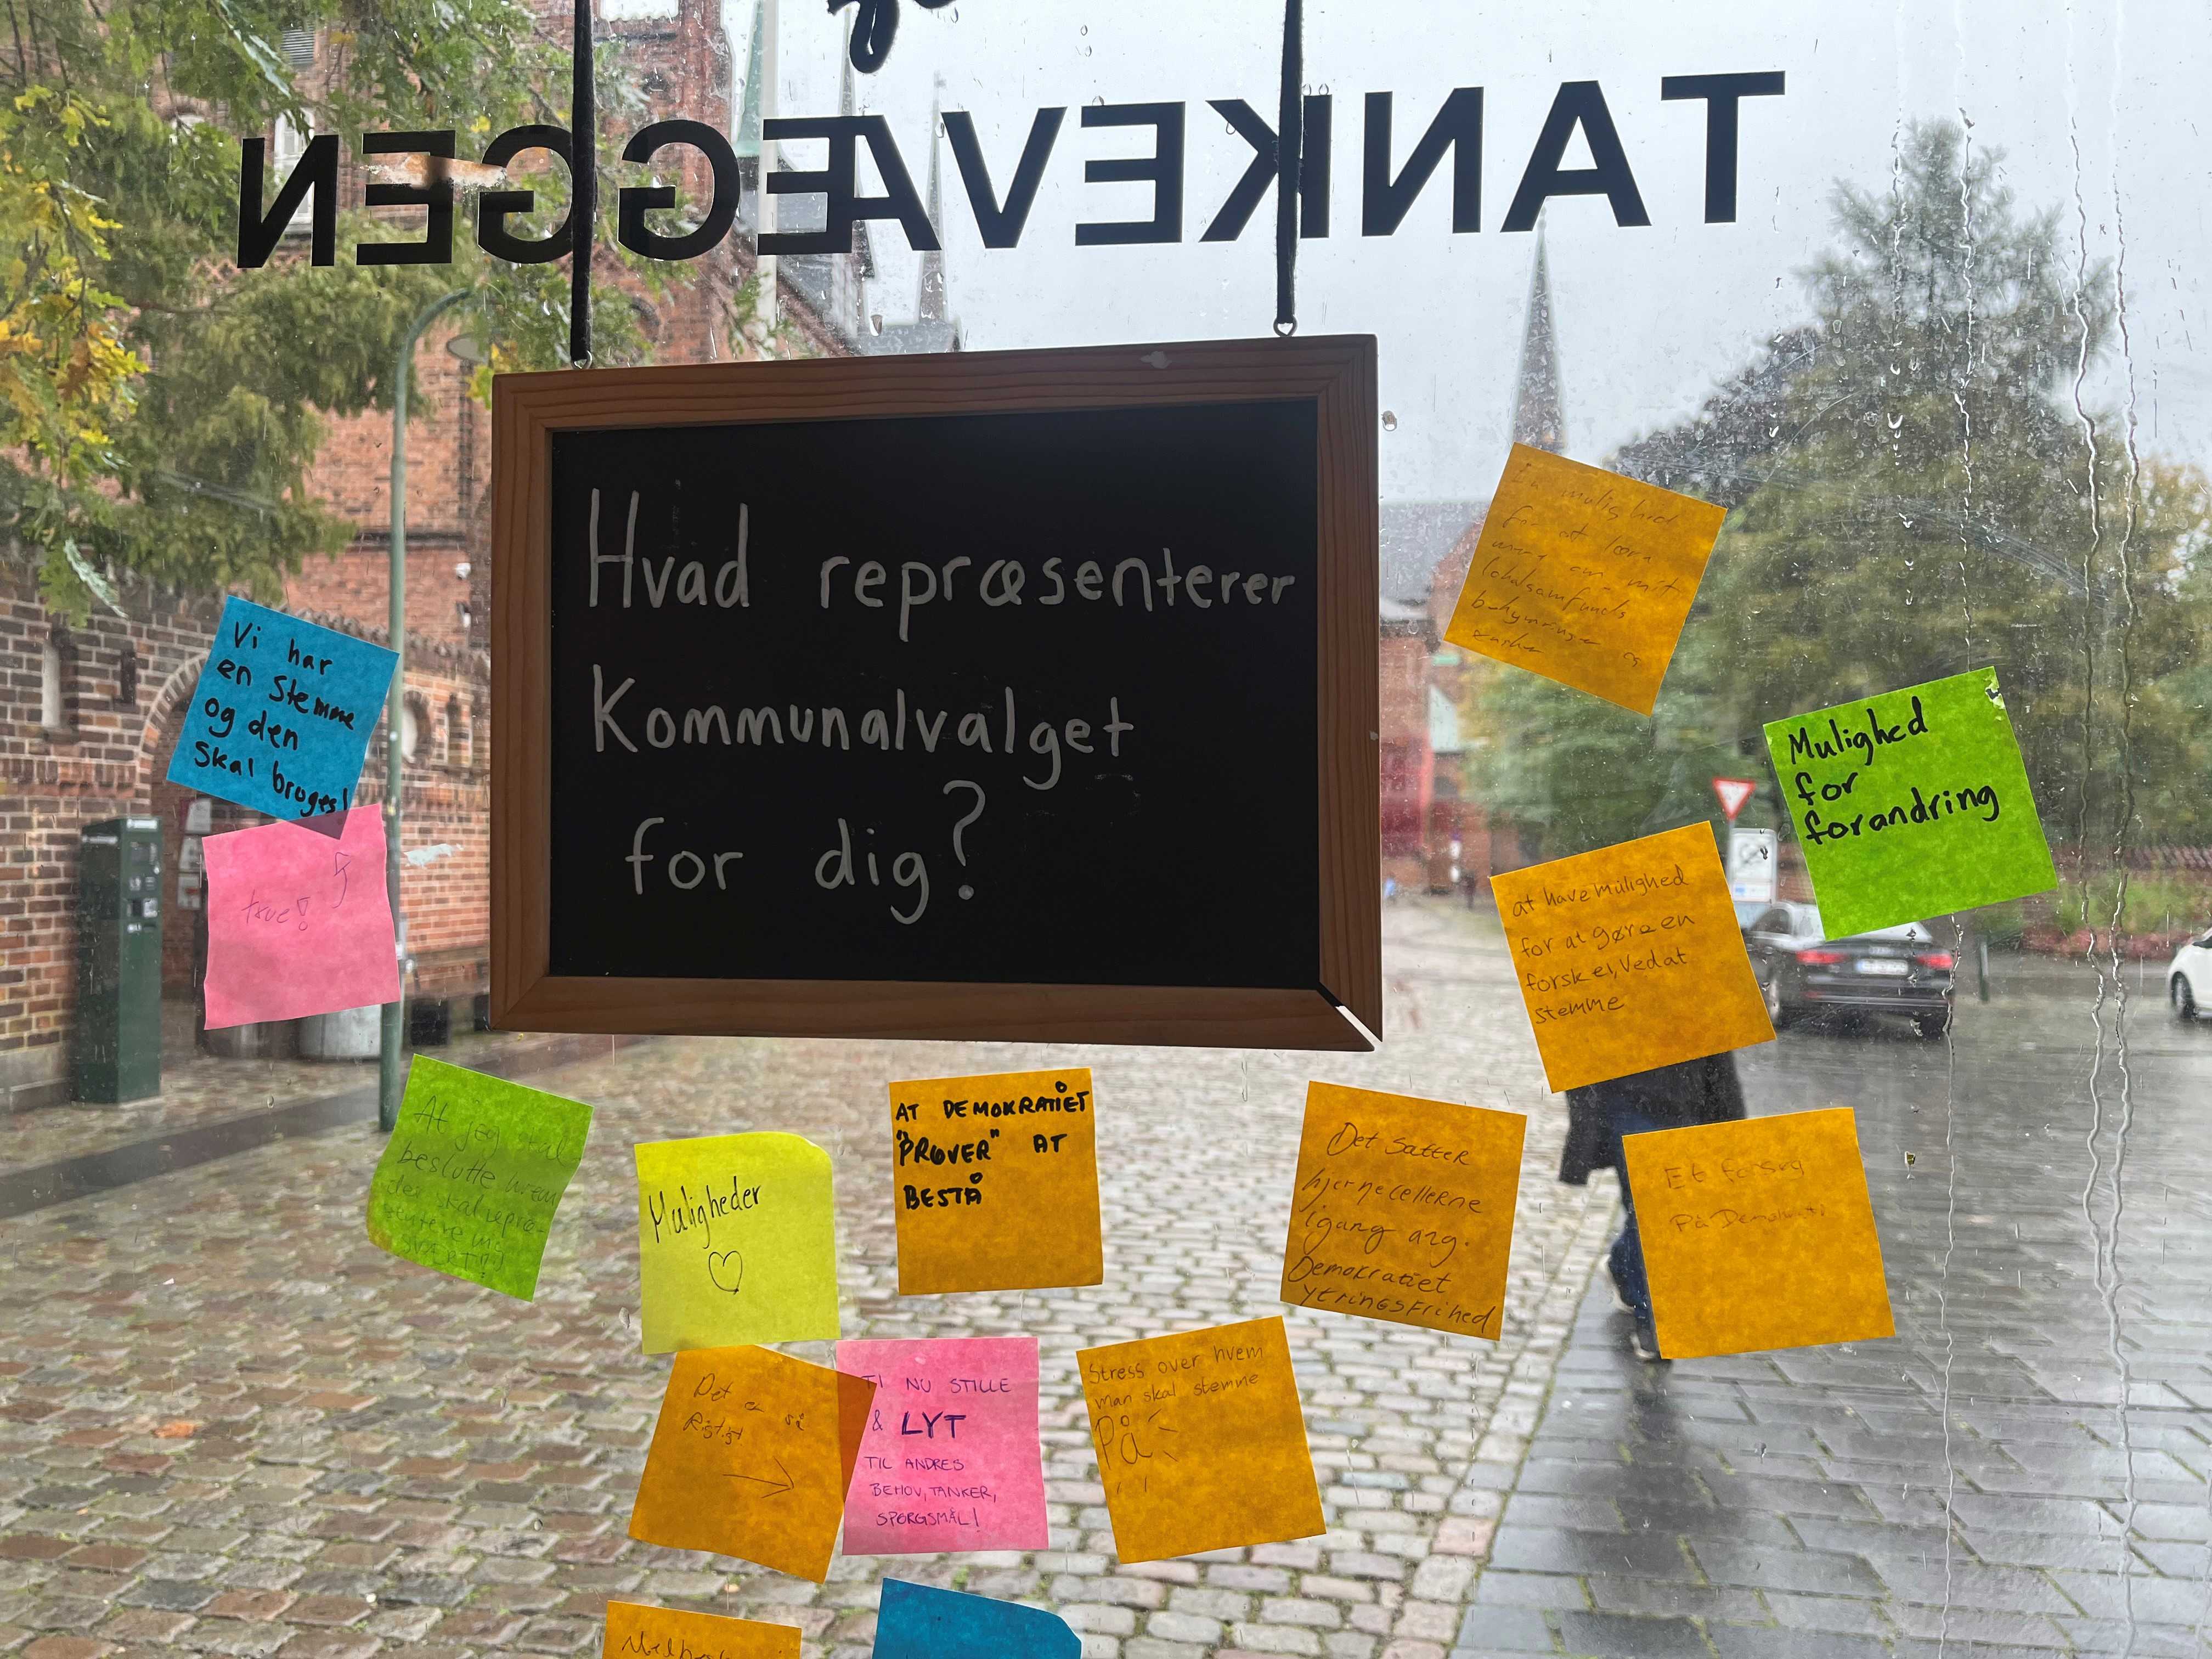 TANKEVÆGGEN
Hvad repræsenterer
Kommunalvalget
for dig?
Vi har
en stemme
og den
skal bruges!
true!
En mulighed
for at lære
mere om mit
lokalsamfunds
og
Mulighed
for
forandring
at have mulighed
for at gøre en
forskel, ved at
stemme
At jeg skal
beslutte hvem
der skal repræ-
sentere mig
SVÆRT!!!
Muligheder
AT DEMOKRATIET
"PRØVER" AT
BESTÅ
Det sætter
hjernecellerne
igang ang.
Demokratiet
Ytringsfrihed
Et forsøg
På Demokrati
Det er så
Rigtigt
TI NU STILLE
& LYT
TIL ANDRES
BEHOV, TANKER,
SPØRGSMÅL!
Stress over hvem
man skal stemme
På